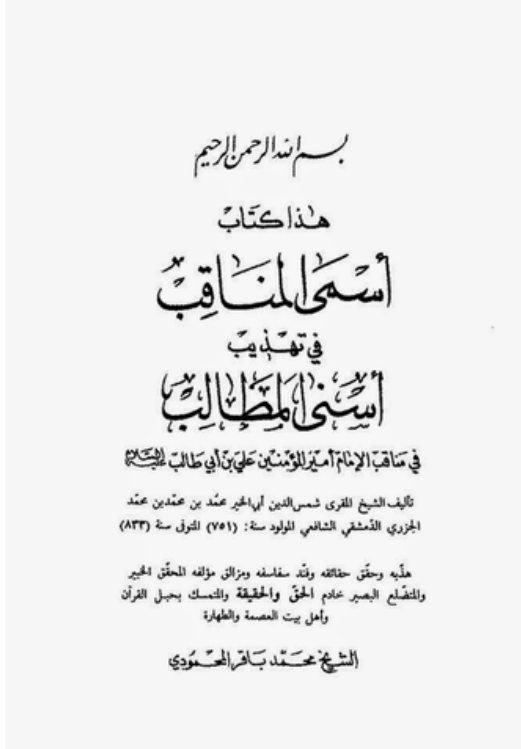 بسم الله الرحمن الرحيم
هذا كتاب
أسمى المناقب
في تهذيب
أسنى المطالب
في مناقب الإمام أمير المؤمنين علي بن أبي طالب عليه السلام
تأليف الشيخ المقرى شمس الدين أبي الخير محمّد بن محمّد بن محمّد
الجزري الدّمشقي الشافعي المولود سنة: (٧٥١) المتوفى سنة (٨٣٣)
هذّبه وحقّق حقائقه وفنّد سفاسفه ومزالق مؤلفه المحقّق الخبير
والمتضّلع البصير خادم الحقّ والحقيقة والمتمسك بحبل القرآن
وأهل بيت العصمة والطهارة
الشيخ محمّد باقر المحمودي